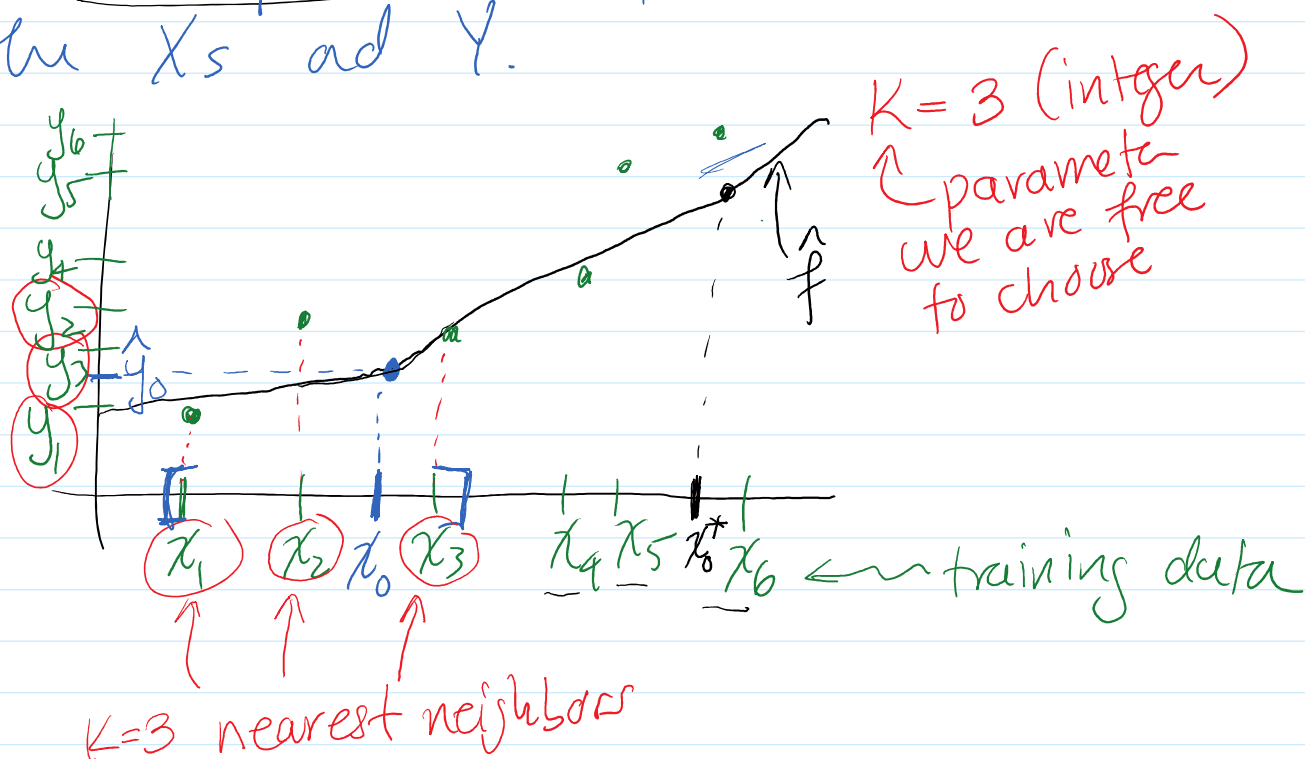 the Xs ad Y.
K = 3 (integer)
parameter
we are free
to choose
y₆
y₅
y₄
y₂
y₃
ŷ₀
y₁
f̂
x₁ x₂ x₀ x₃ x₄ x₅ x₀* x₆ ← training data
K=3 nearest neighbors